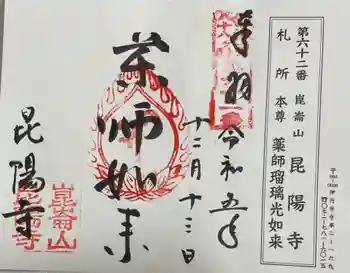 第六十二番 崑崙山 昆陽寺
札所本尊 薬師瑠璃光如来
奉拝 令和五年
十二月十三日
薬師如来
昆陽寺
崑崙山